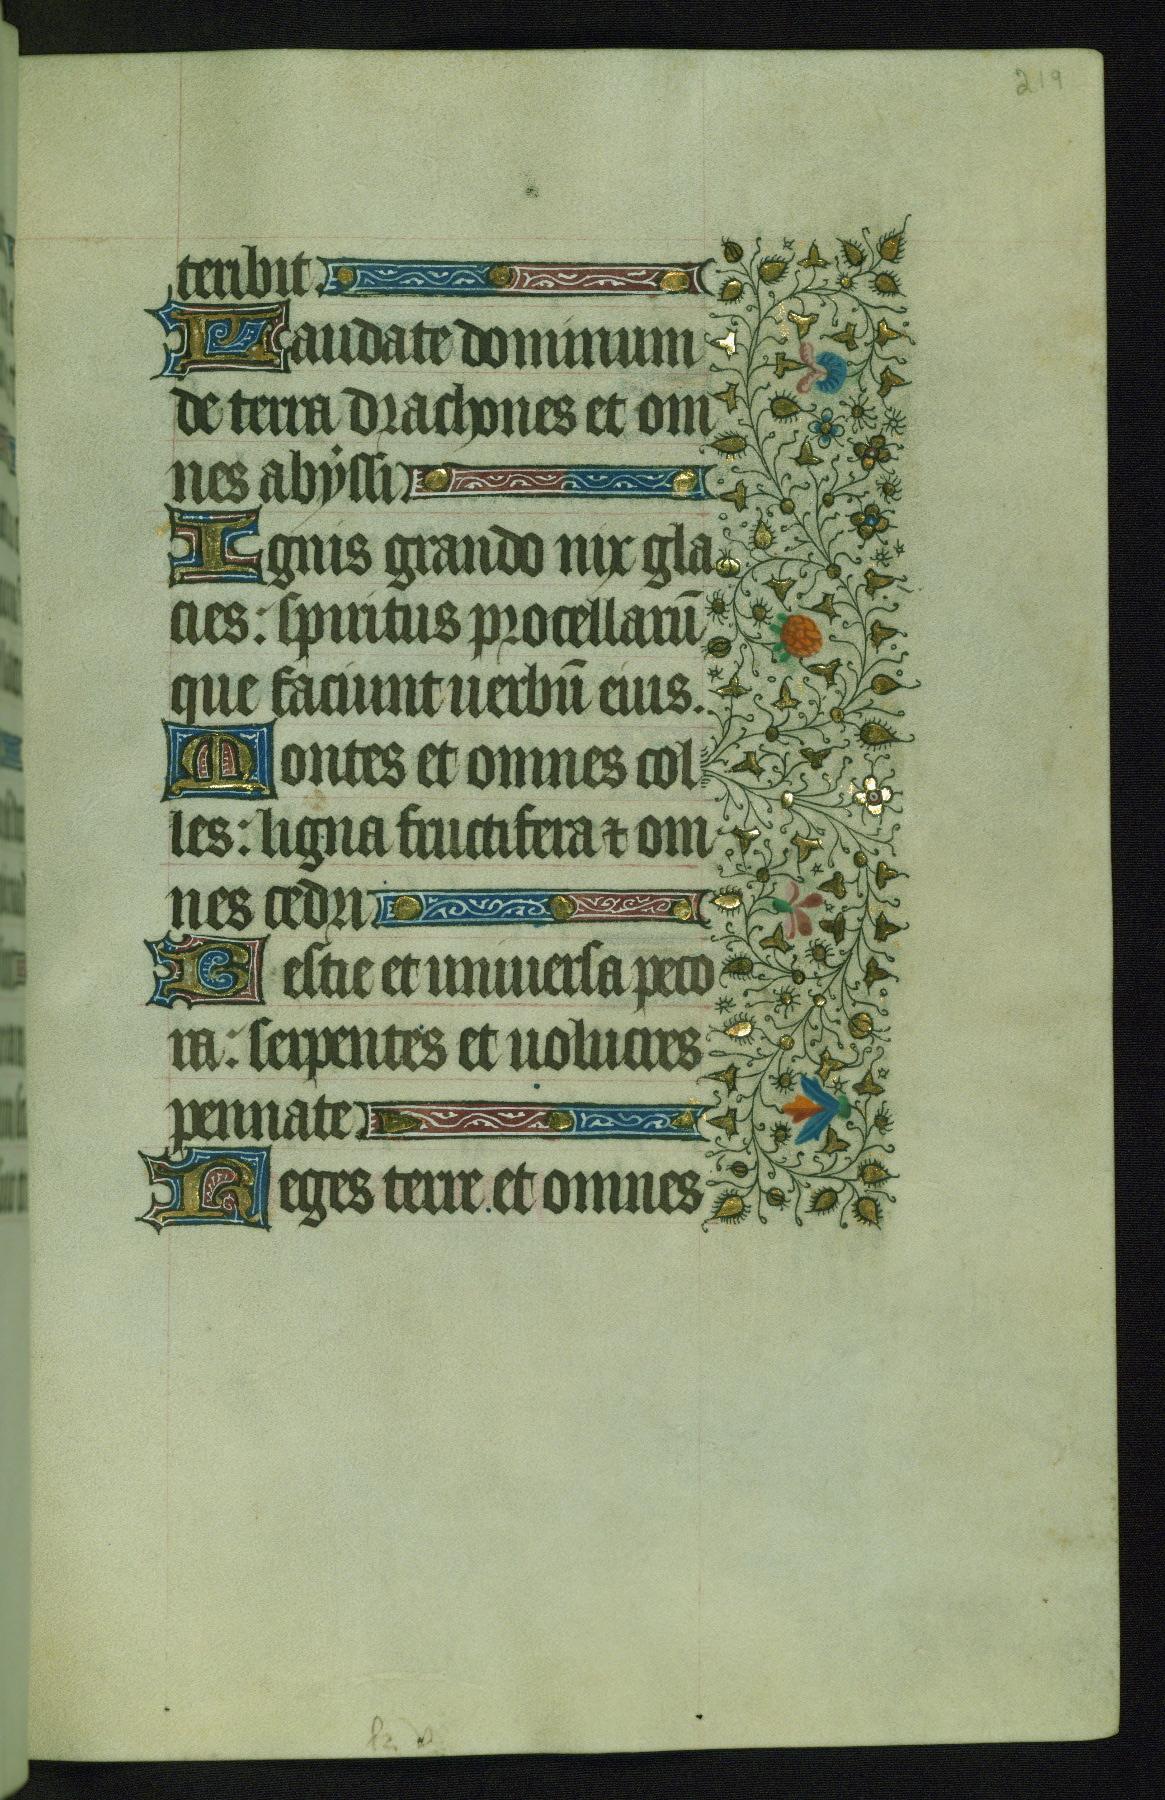 219
teribit
Laudate dominum
de terra drachones et om
nes abyssi
Ignis grando nix gla
cies: spiritus procellarū
que faciunt uerbū eius.
Montes et omnes col
les: ligna fructifera ⁊ om
nes cedri
Bestie et uniuersa peco
ra: serpentes et uolucres
pennate
Reges terre et omnes